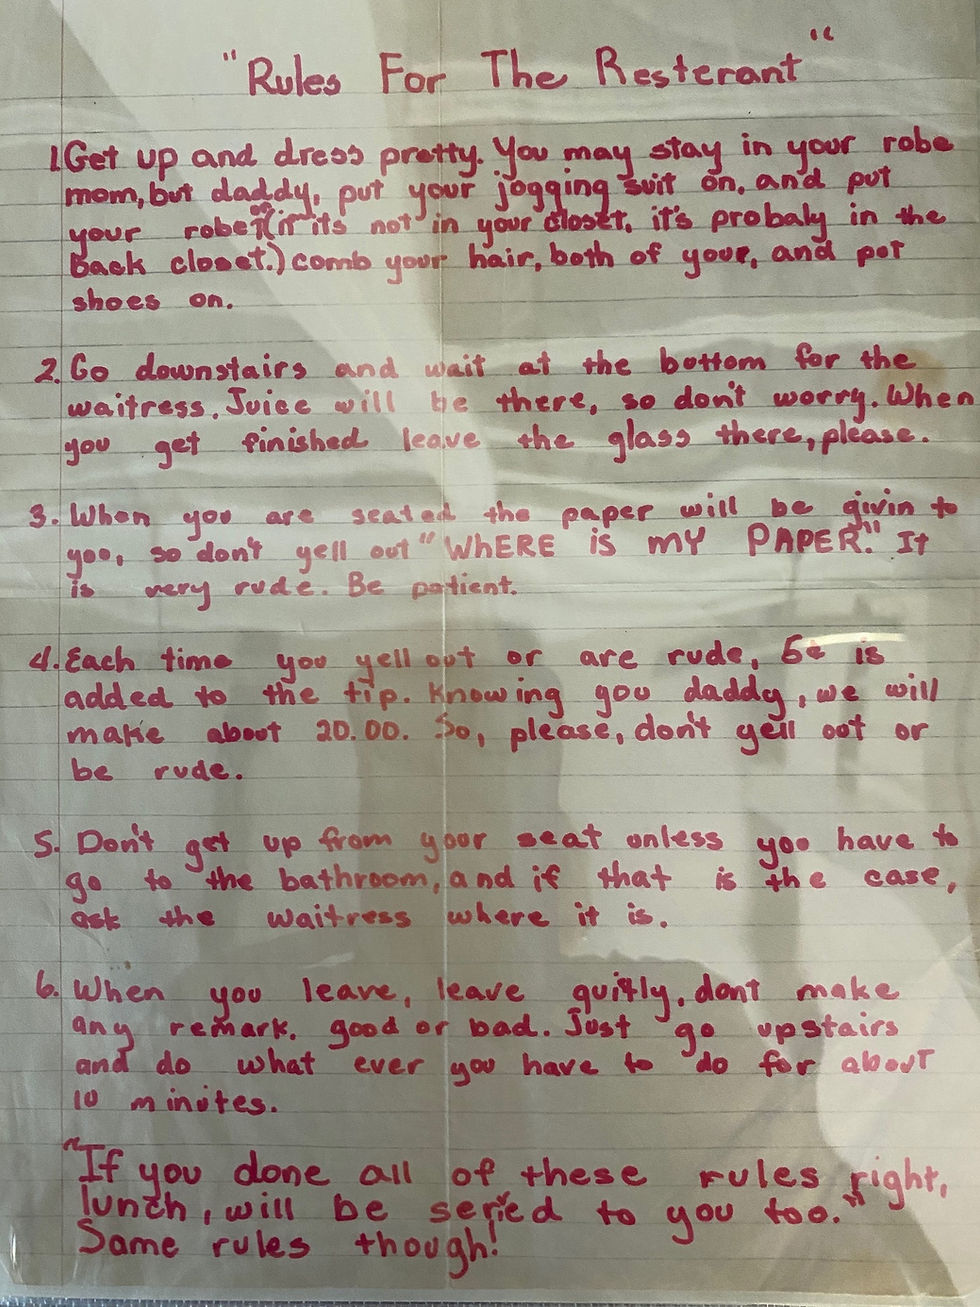 "Rules For The Resterant"
1. Get up and dress pretty. You may stay in your robe
mom, but daddy, put your jogging suit on, and put
your robe? (if its not in your closet, it's probaly in the
back closet.) comb your hair, both of your, and pot
shoes on.
2. Go downstairs and wait at the bottom for the
waitress. Juice will be there, so don't worry. When
you get finished leave the glass there, please.
3. When you are seated the paper will be givin to
you, so don't yell out "WHERE is MY PAPER." It
is very rude. Be patient.
4. Each time you yell out or are rude, 5¢ is
added to the tip. Knowing you daddy, we will
make about 20.00. So, please, don't yell out or
be rude.
5. Don't get up from your seat unless you have to
go to the bathroom, and if that is the case,
ask the waitress where it is.
6. When you leave, leave quitly, dont make
any remark, good or bad. Just go upstairs
and do what ever you have to do for about
10 minutes.
"If you done all of these rules right,
lunch, will be served to you too."
Same rules though!